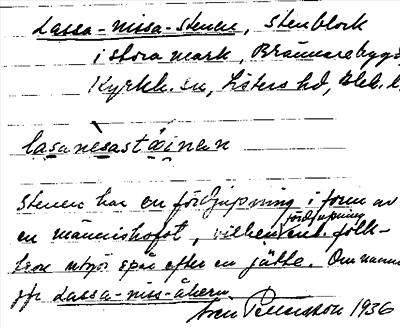 Lassa-nissa-stenen, stenblock
i stora mark, Brännarebygd
Kyrkh. sn, Listers hd, Blek. l.
lasanèsastäinan
Stenen har en fördjupning i form av
en människofot, vilken fördjupning enl. folk-
tron utgör spår efter en jätte. Om namnet
jfr Lassa-niss-åkern
Sven Petersson 1936